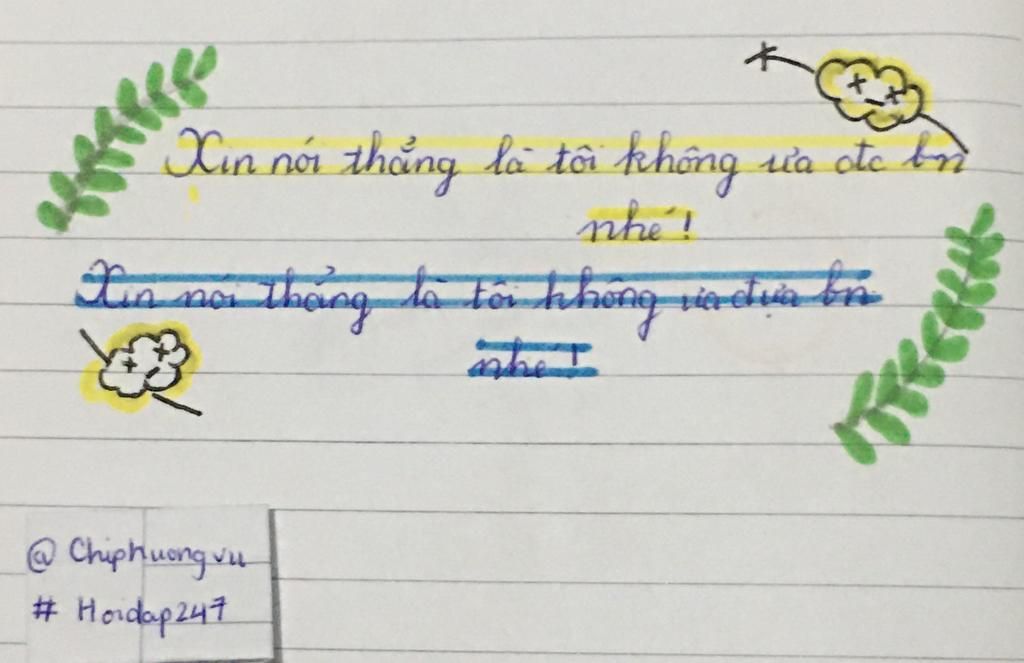 Xin nói thẳng là tôi không ưa đtc bn
nhé!
Xin nói thẳng là tôi không ưa đựa bn
nhé!
@ Chiphuongvu
# Hoidap247